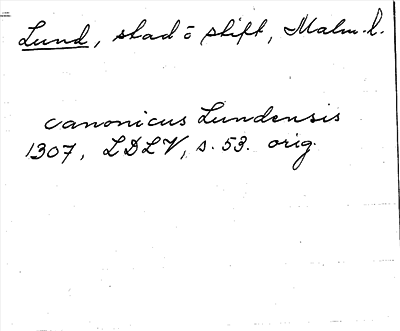 Lund, stad o stift, Malm.l.
canonicus Lundensis
1307, LDLV, s. 53. orig.